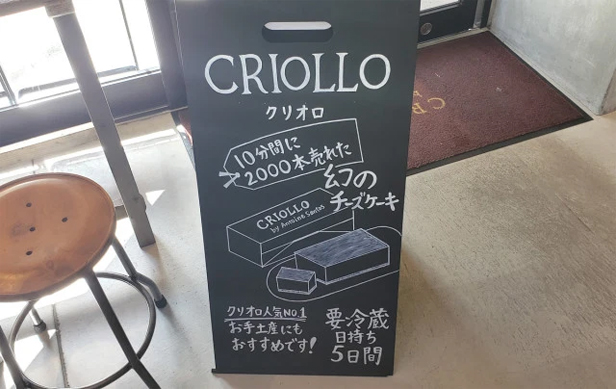 CRIOLLO
クリオロ
10分間に
2000本売れた
幻の
チーズケーキ
CRIOLLO
by Antoine Santos
クリオロ人気NO.1
お手土産にも
おすすめです!
要冷蔵
日持ち
5日間